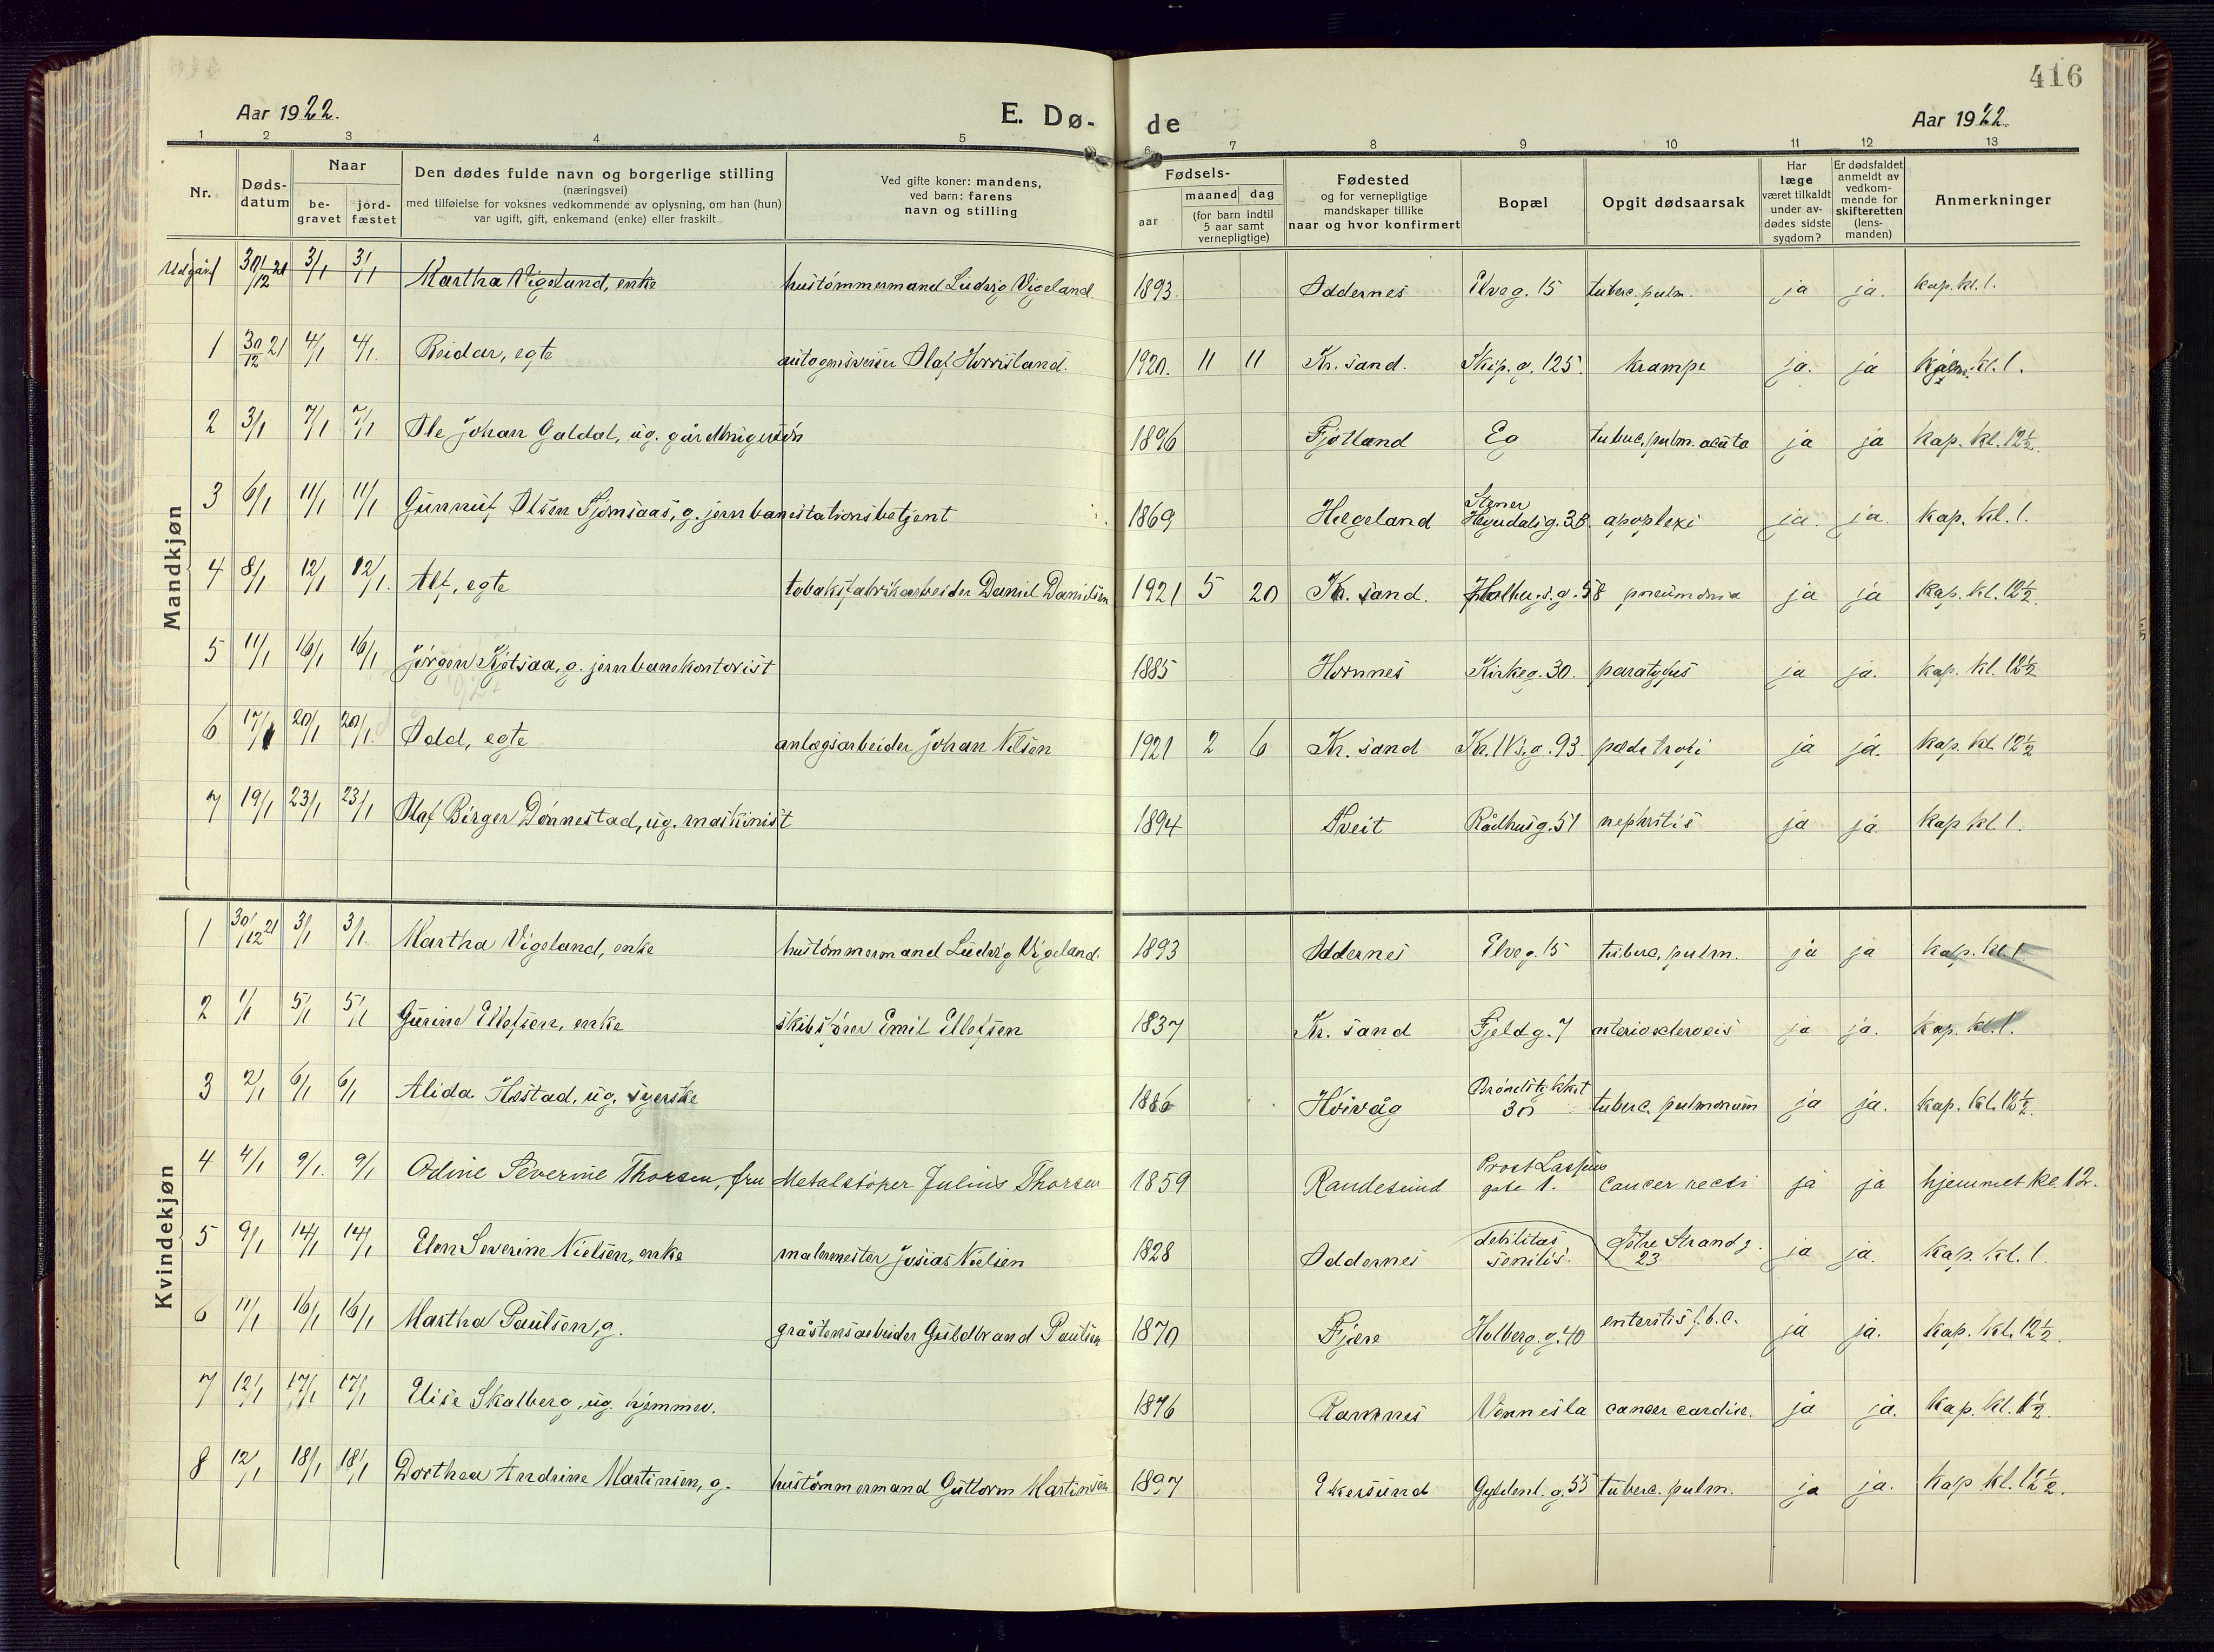 416
Aar 1922. E. Dø- de Aar 1922.
1 2 3 4 5 6 7 8 9 10 11 12 13
Nr. Døds-datum Naar be-gravet jord-fæstet Den dødes fulde navn og borgerlige stilling (næringsvei) med tilføielse for voksnes vedkommende av oplysning, om han (hun) var ugift, gift, enkemand (enke) eller fraskilt Ved gifte koner: mandens, ved barn: farens navn og stilling Fødsels- aar maaned dag (for barn indtil 5 aar samt vernepligtige) Fødested og for vernepligtige mandskaper tillike naar og hvor konfirmert Bopæl Opgit dødsaarsak Har læge været tilkaldt under av-dødes sidste sygdom? Er dødsfaldet anmeldt av vedkom-mende for skifteretten (lens-manden) Anmerkninger
Mandkjøn
Udgår 30/12 21 3/1 3/1 Martha Vigeland, enke hustømmermand Ludvig Vigeland. 1893 Oddernes Elveg. 15 tuberc. pulm. ja ja. kap. kl. 1.
1 30/12 21 4/1 4/1. Reidar, egte autogensveiser Olaf Horrisland. 1920. 11 11 Kr. sand. Skip. g. 125. krampe ja. ja kl. 1.
2 3/1 7/1 7/1 Ole Johan Galdal, ug. gårdbrugersøn 1896 Fjotland Eg tuberc. pulm. acuta ja ja kap. kl. 12½.
3 6/1 11/1 11/1 Gunnuf Olsen Sjømsaas, g. jernbanestationsbetjent 1869 Hægeland Stener Heyerdalsg. 38 apoplexi ja. ja. kap. kl. 1.
4 8/1 12/1 12/1. Alf, egte tobaksfabrikarbeider Daniel Danielsen 1921 5 20 Kr. sand. Holbergs. g. 58 pneumonia ja ja kap. kl. 12½.
5 11/1 16/1 16/1 Jørgen Kjetsaa, g. jernbanekontorist 1885 Hornnes Kirkeg. 30. paratyfus ja ja. kap. kl. 12½
6 17/1 20/1 20/1. Odd, egte anlægsarbeider Johan Nilsen 1921 2 6 Kr. sand Kr. IVs. g. 93 pædatrofi ja ja. kap. kl. 12½
7 19/1 23/1 23/1 Olaf Birger Dønnestad, ug. maskinist 1894 Tveit Rådhusg. 51 nephritis ja ja kap kl. 1.
Kvindekjøn
1 30/12 21 3/1 3/1. Martha Vigeland, enke hustømmermand Ludvig Vigeland. 1893 Oddernes Elveg. 15 tuberc. pulm. ja ja kap. kl. 1
2 1/1 5/1 5/1 Gurine Ellefsen, enke skibsfører Emil Ellefsen 1837 Kr. sand Fjeldg. 7 arteriosclerosis ja ja. kap. kl. 1.
3 2/1 6/1 6/1 Alida Hæstad, ug. syerske 1886 Høivåg 30 tuberc. pulmonum ja ja. kap. kl. 12½.
4 4/1 9/1. 9/1 Odine Severine Thorsen, fru Metalstøper Julius Thorsen 1859 Randesund Prost Lassens gate 1. Cancer recti ja ja hjemmet kl. 12.
5 9/1 14/1 14/1 Elen Severine Nielsen, enke malermester Josias Nielsen 1828 Oddernes debilitas senilis. Østre Strandg. 23 ja ja. kap. kl. 1.
6 11/1 16/1 16/1 Martha Paulsen, g. gråstensarbeider Guldbrand Paulsen 1870 Fjære Holberg. g. 40 enteritis t.b.c. ja ja. kap. kl. 12½.
7 12/1 17/1 17/1 Elise Skalberg, ug. hjemmev. 1876 Ramnes Vennesla cancer cardiæ. ja ja. kap. kl. 1½.
8 12/1 18/1 18/1 Dorthea Andrine Martinsen, g. hustømmermand Guttorm Martinsen 1897 Ekersund Gyldenl. g. 55 tuberc. pulm. ja ja. kap kl. 12½.